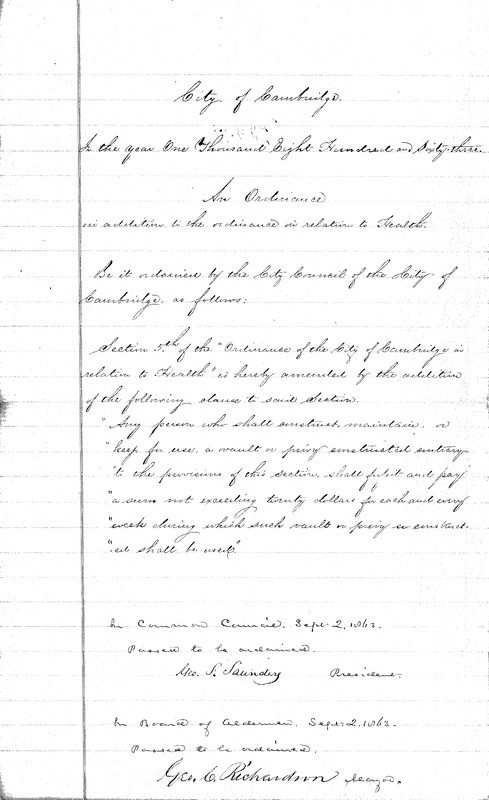 City of Cambridge.
In the year One Thousand Eight Hundred and Sixty-three.
An Ordinance
in addition to the ordinance in relation to Health.
Be it ordained by the City Council of the City of
Cambridge, as follows:
Section 5.th of the "Ordinance of the City of Cambridge in
relation to Health" is hereby amended by the addition
of the following clause to said Section.
"Any person who shall construct, maintain, or
"keep for use, a vault or privy constructed contrary
"to the provisions of this section, shall forfeit and pay
"a sum not exceeding twenty dollars for each and every
"week during which such vault or privy so construct-
"ed shall be used."
In Common Council, Sept. 2, 1863.
Passed to be ordained.
Geo. S. Saunders President.
In Board of Aldermen, Sept. 2, 1863.
Passed to be ordained.
Geo. C. Richardson Mayor.